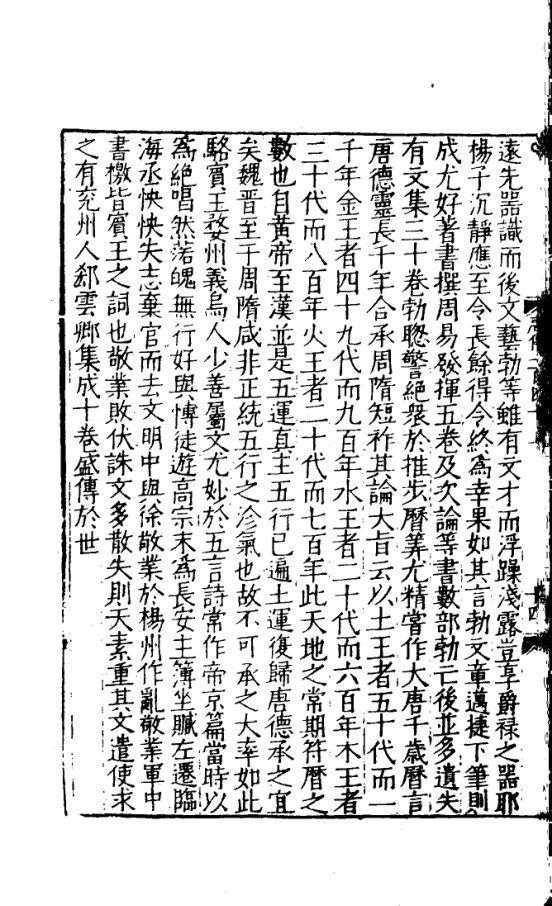 遠先器識而後文藝勃等雖有文才而浮躁淺露豈享爵祿之器耶
楊子沉靜應至令長餘得令終為幸果如其言勃文章邁捷下筆則
成尤好著書撰周易發揮五卷及次論等書數部勃亡後並多遺失
有文集三十卷勃聰警絕衆於推步曆筭尤精嘗作大唐千歲曆言
唐德靈長千年合承周隋短祚其論大旨云以土王者五十代而一
千年金王者四十九代而九百年水王者二十代而六百年木王者
三十代而八百年火王者二十代而七百年此天地之常期符曆之
數也自黃帝至漢並是五運真主五行已遍土運復歸唐德承之宜
矣魏晉至于周隋咸非正統五行之沴氣也故不可承之大率如此
駱賓王婺州義烏人少善屬文尤妙於五言詩常作帝京篇當時以
為絕唱然落魄無行好與愽徒遊高宗末為長安主簿坐贓左遷臨
海丞怏怏失志棄官而去文明中與徐敬業於楊州作亂敬業軍中
書檄皆賓王之詞也敬業敗伏誅文多散失則天素重其文遣使求
之有兖州人郄雲卿集成十卷盛傳於世